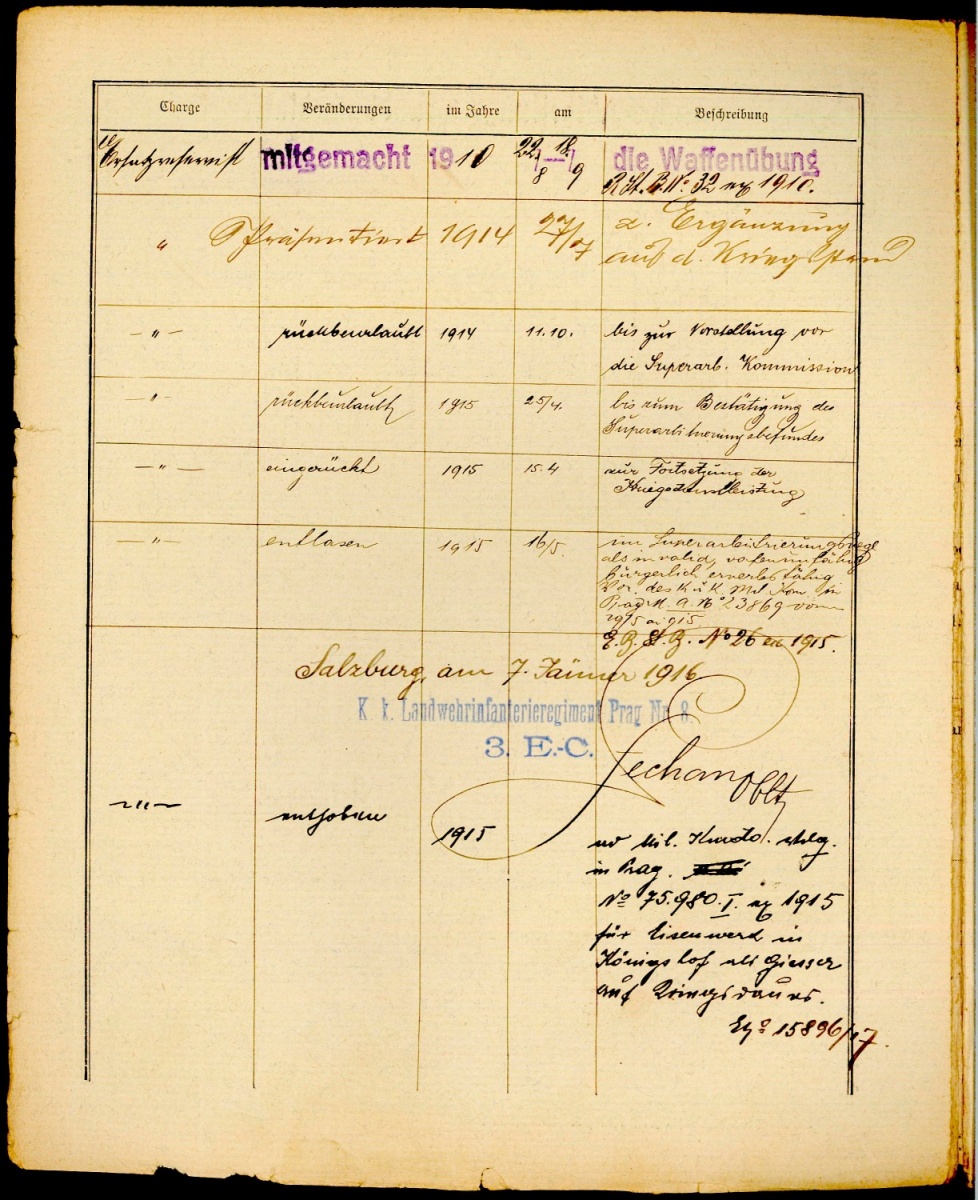 Charge Veränderungen im Jahre am Beschreibung
Ersatzreservist mitgemacht 1910 22/8 – 18/9 die Waffenübung
R. St. B. No 32 ex 1910.
" Präsentiert 1914 27/7 z. Ergänzung
auf d. Kriegsstand
– " – rückbeurlaubt 1914 11.10. bis zur Vorstellung vor
die Superarb. Kommission
– " – rückbeurlaubt 1915 25/4. bis zum Bestätigung des
Superarbitrierungsbefundes
– " – eingerückt 1915 15.4 zur Fortsetzung der
Kriegsdienstleistung
– " – entlasen 1915 16/5. im Superarbitrierungswege
als invalid, waffenunfähig
bürgerlich erwerbsfähig
des K. u. K. Mil. Kom. in
Prag M. A. No 23869 vom
1915
E. B. St. B. No 26 ex 1915.
Salzburg, am 7. Jänner 1916
K. k. Landwehrinfanterieregiment Prag Nr. 8.
3. E.-C.
Oblt
– " – enthoben 1915 Mil. Kmdo.
in Prag.
No 75.980. I. ex 1915
für Eisenwerk in
Königshof als Giesser
auf Kriegsdauer.
15896/17